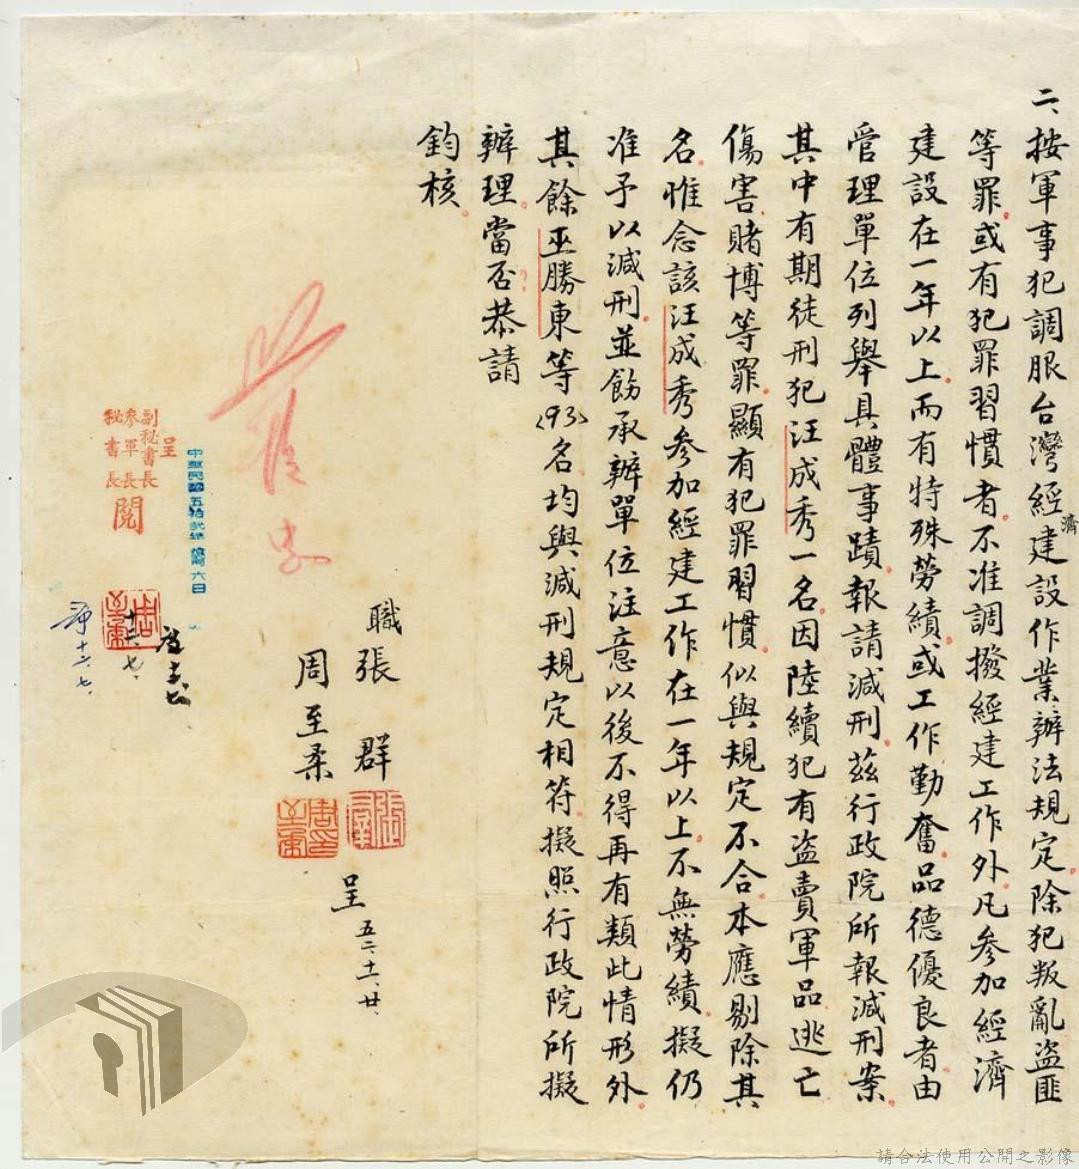 二、按軍事犯調服台灣經濟建設作業辦法規定。除犯叛亂盜匪
等罪。或有犯罪習慣者。不准調撥經建工作外。凡參加經濟
建設在一年以上。而有特殊勞績。或工作勤奮。品德優良者。由
管理單位列舉具體事蹟。報請減刑。茲行政院所報減刑案。
其中有期徒刑犯汪成秀一名。因陸續犯有盜賣軍品。逃亡
傷害。賭博等罪。顯有犯罪習慣。似與規定不合。本應剔除其
名。惟念該汪成秀參加經建工作在一年以上。不無勞績。擬仍
准予以減刑。並飭承辦單位注意以後不得再有類此情形外。
其餘巫勝東等〈93〉名。均與減刑規定相符。擬照行政院所擬
辦理。當否?恭請
鈞核。
職張群
周至柔
呈 五二、十一、廿、
中華民國五拾貳年 六日
呈
副秘書長
參軍長
秘書長
閱
十二、七、
十二、七、
請合法使用公開之影像